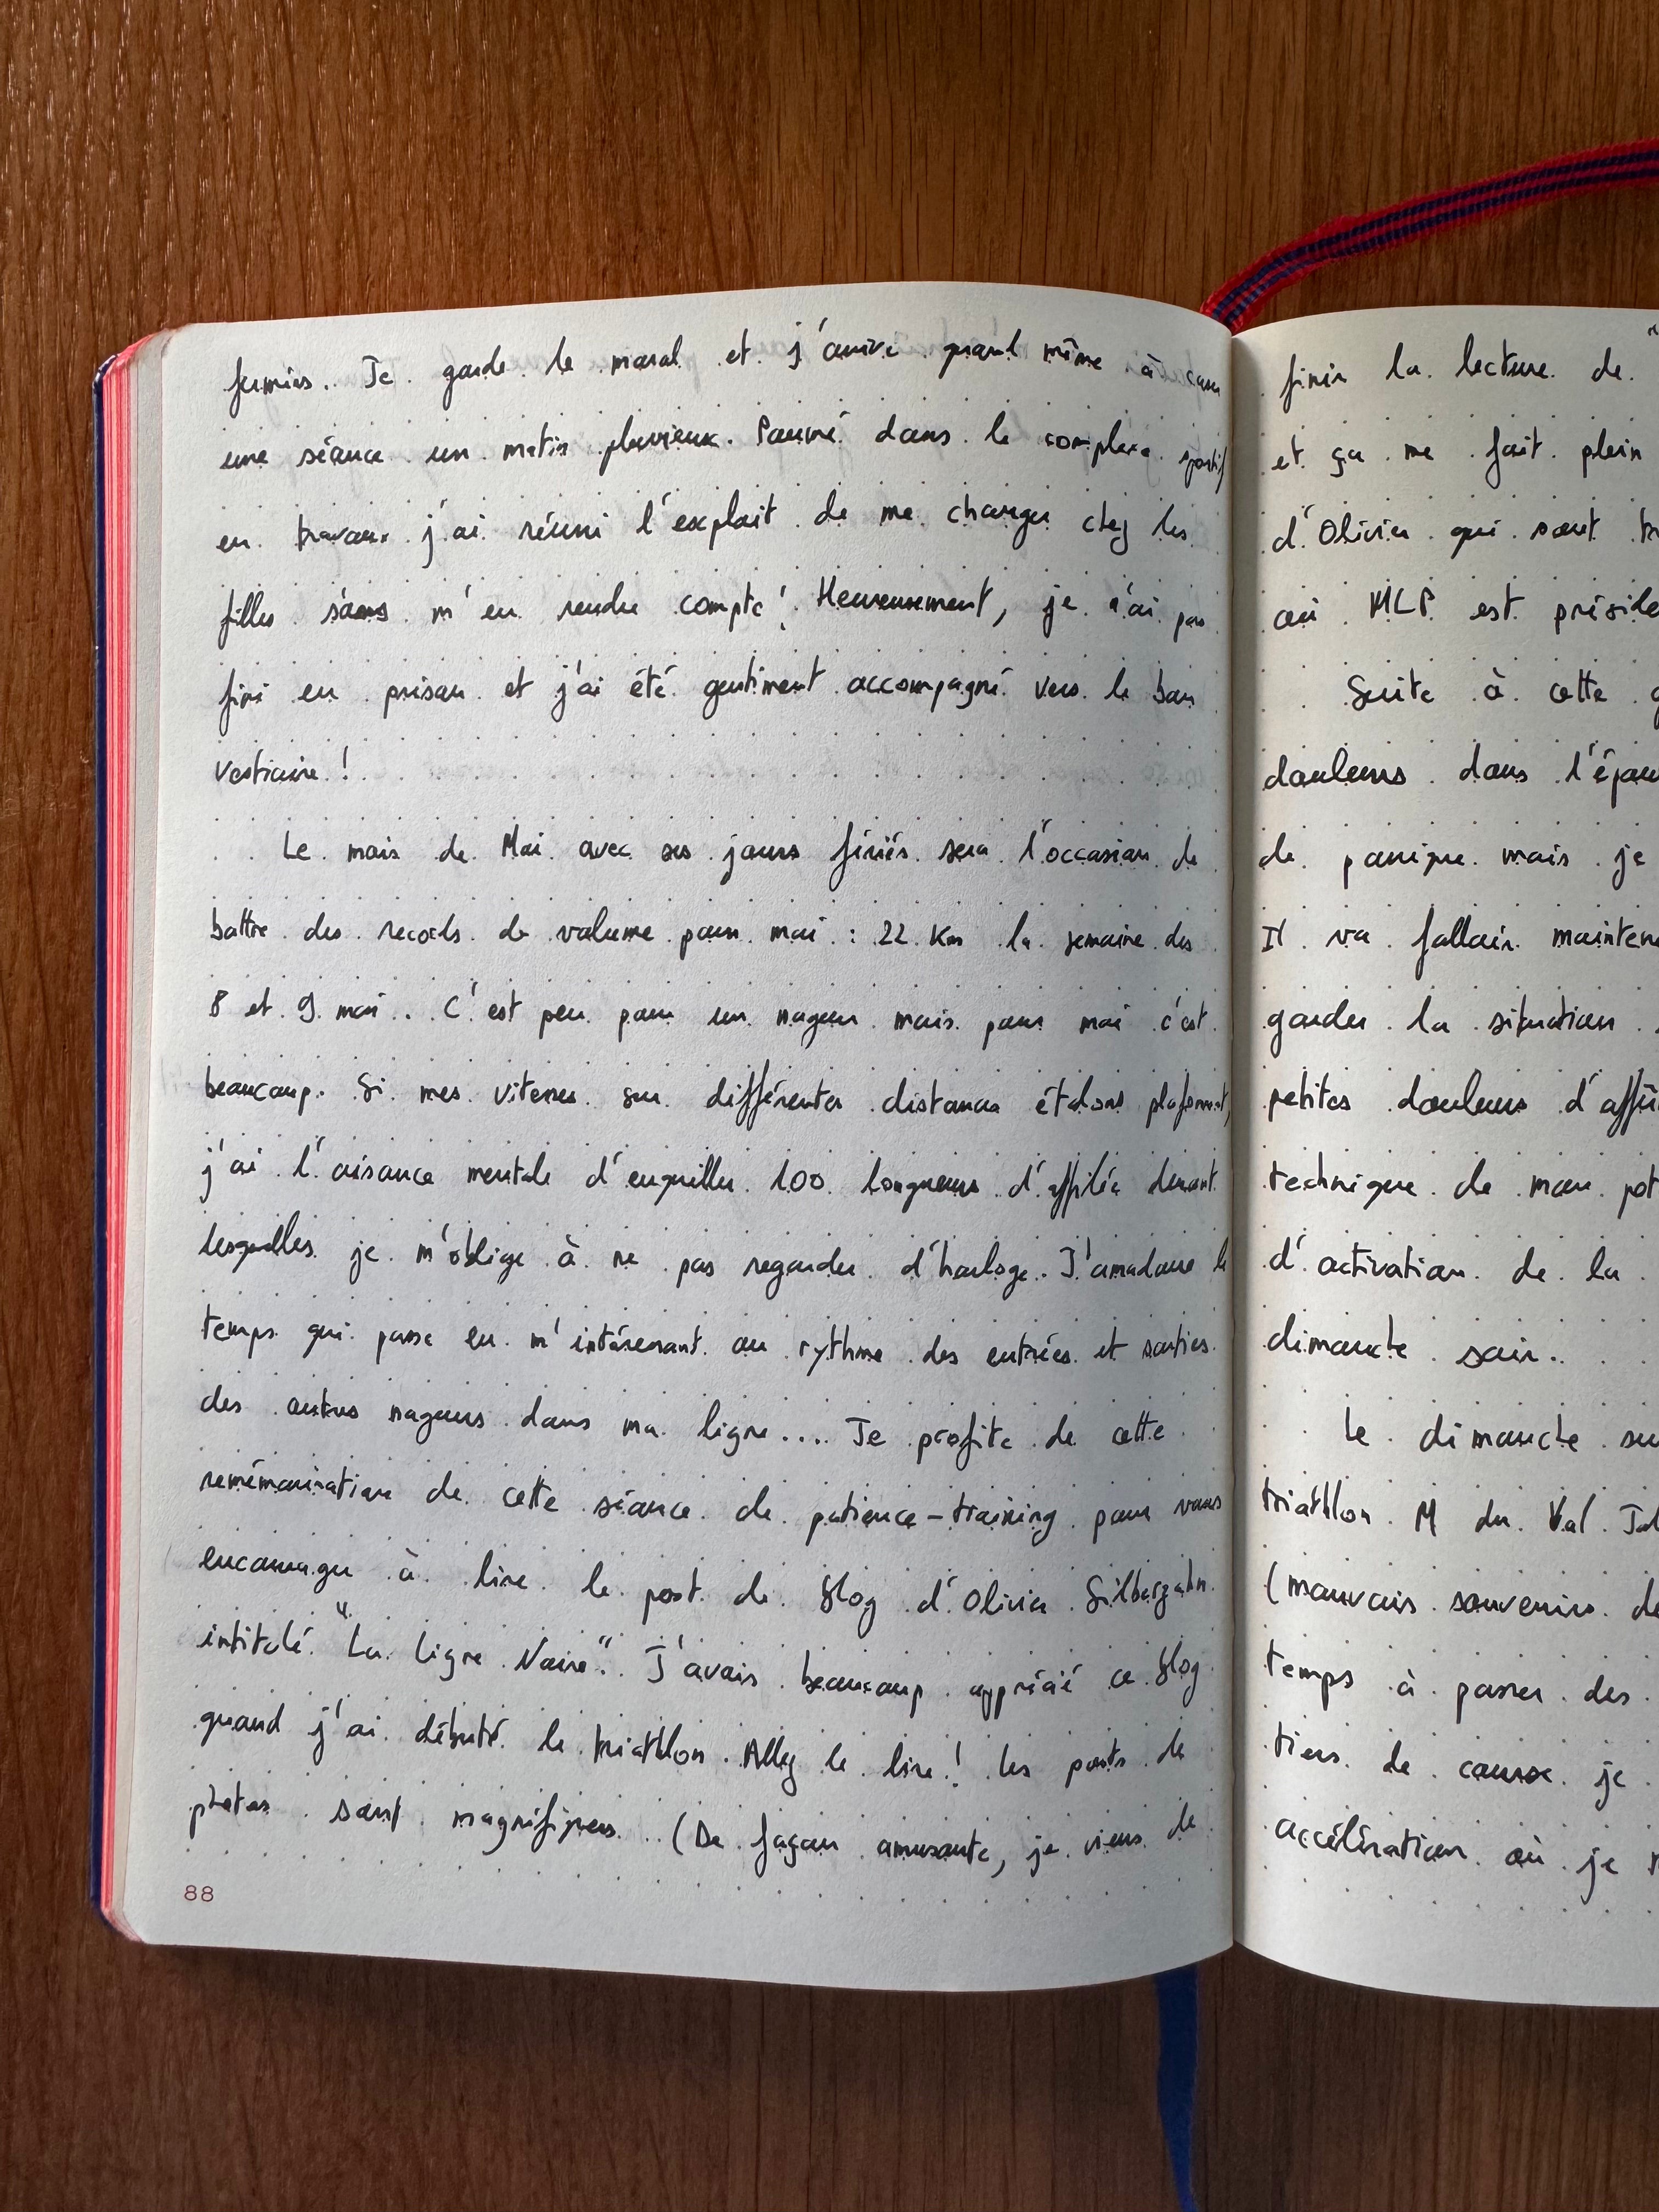 fermées. Je garde le moral et j'arrive quand même à
une séance un matin pluvieux. Paumé dans le complexe sportif
en travaux j'ai réussi l'exploit de me changer chez les
filles sans m'en rendre compte! Heureusement, je n'ai pas
fini en prison et j'ai été gentiment accompagné vers le bon
vestiaire !
Le mois de Mai avec ses jours fériés sera l'occasion de
battre des records de volume pour moi : 22 km la semaine des
8 et 9 mai. C'est peu pour un nageur mais pour moi c'est
beaucoup. Si mes vitesses sur différentes distances étalons plafonnent,
j'ai l'aisance mentale d'enquiller 100 longueurs d'affilée durant
lesquelles je m'oblige à ne pas regarder d'horloge. J'amadoue le
temps qui passe en m'intéressant au rythme des entrées et sorties
des autres nageurs dans ma ligne.... Je profite de cette
remémorisation de cette séance de patience-training pour vous
encourager à lire le post de blog d'Olivier Silberzahn
intitulé "La ligne Noire". J'avais beaucoup apprécié ce blog
quand j'ai débuté le triathlon. Allez le lire! Les posts de
photos sont magnifiques. (De façon amusante, je viens de
88
finir la lecture de "
et ça me fait plein
d'Olivier qui sont
où MLP est préside
Suite à cette
douleurs dans l'épau
de panique mais je
Il va falloir mainten
garder la situation
petites douleurs d'affû
technique de mon pot
d'activation de la
dimanche soir.
Le dimanche su
triathlon M du Val Jol
(mauvais souvenirs de
temps à passer des
tiers de course je
accélération où je